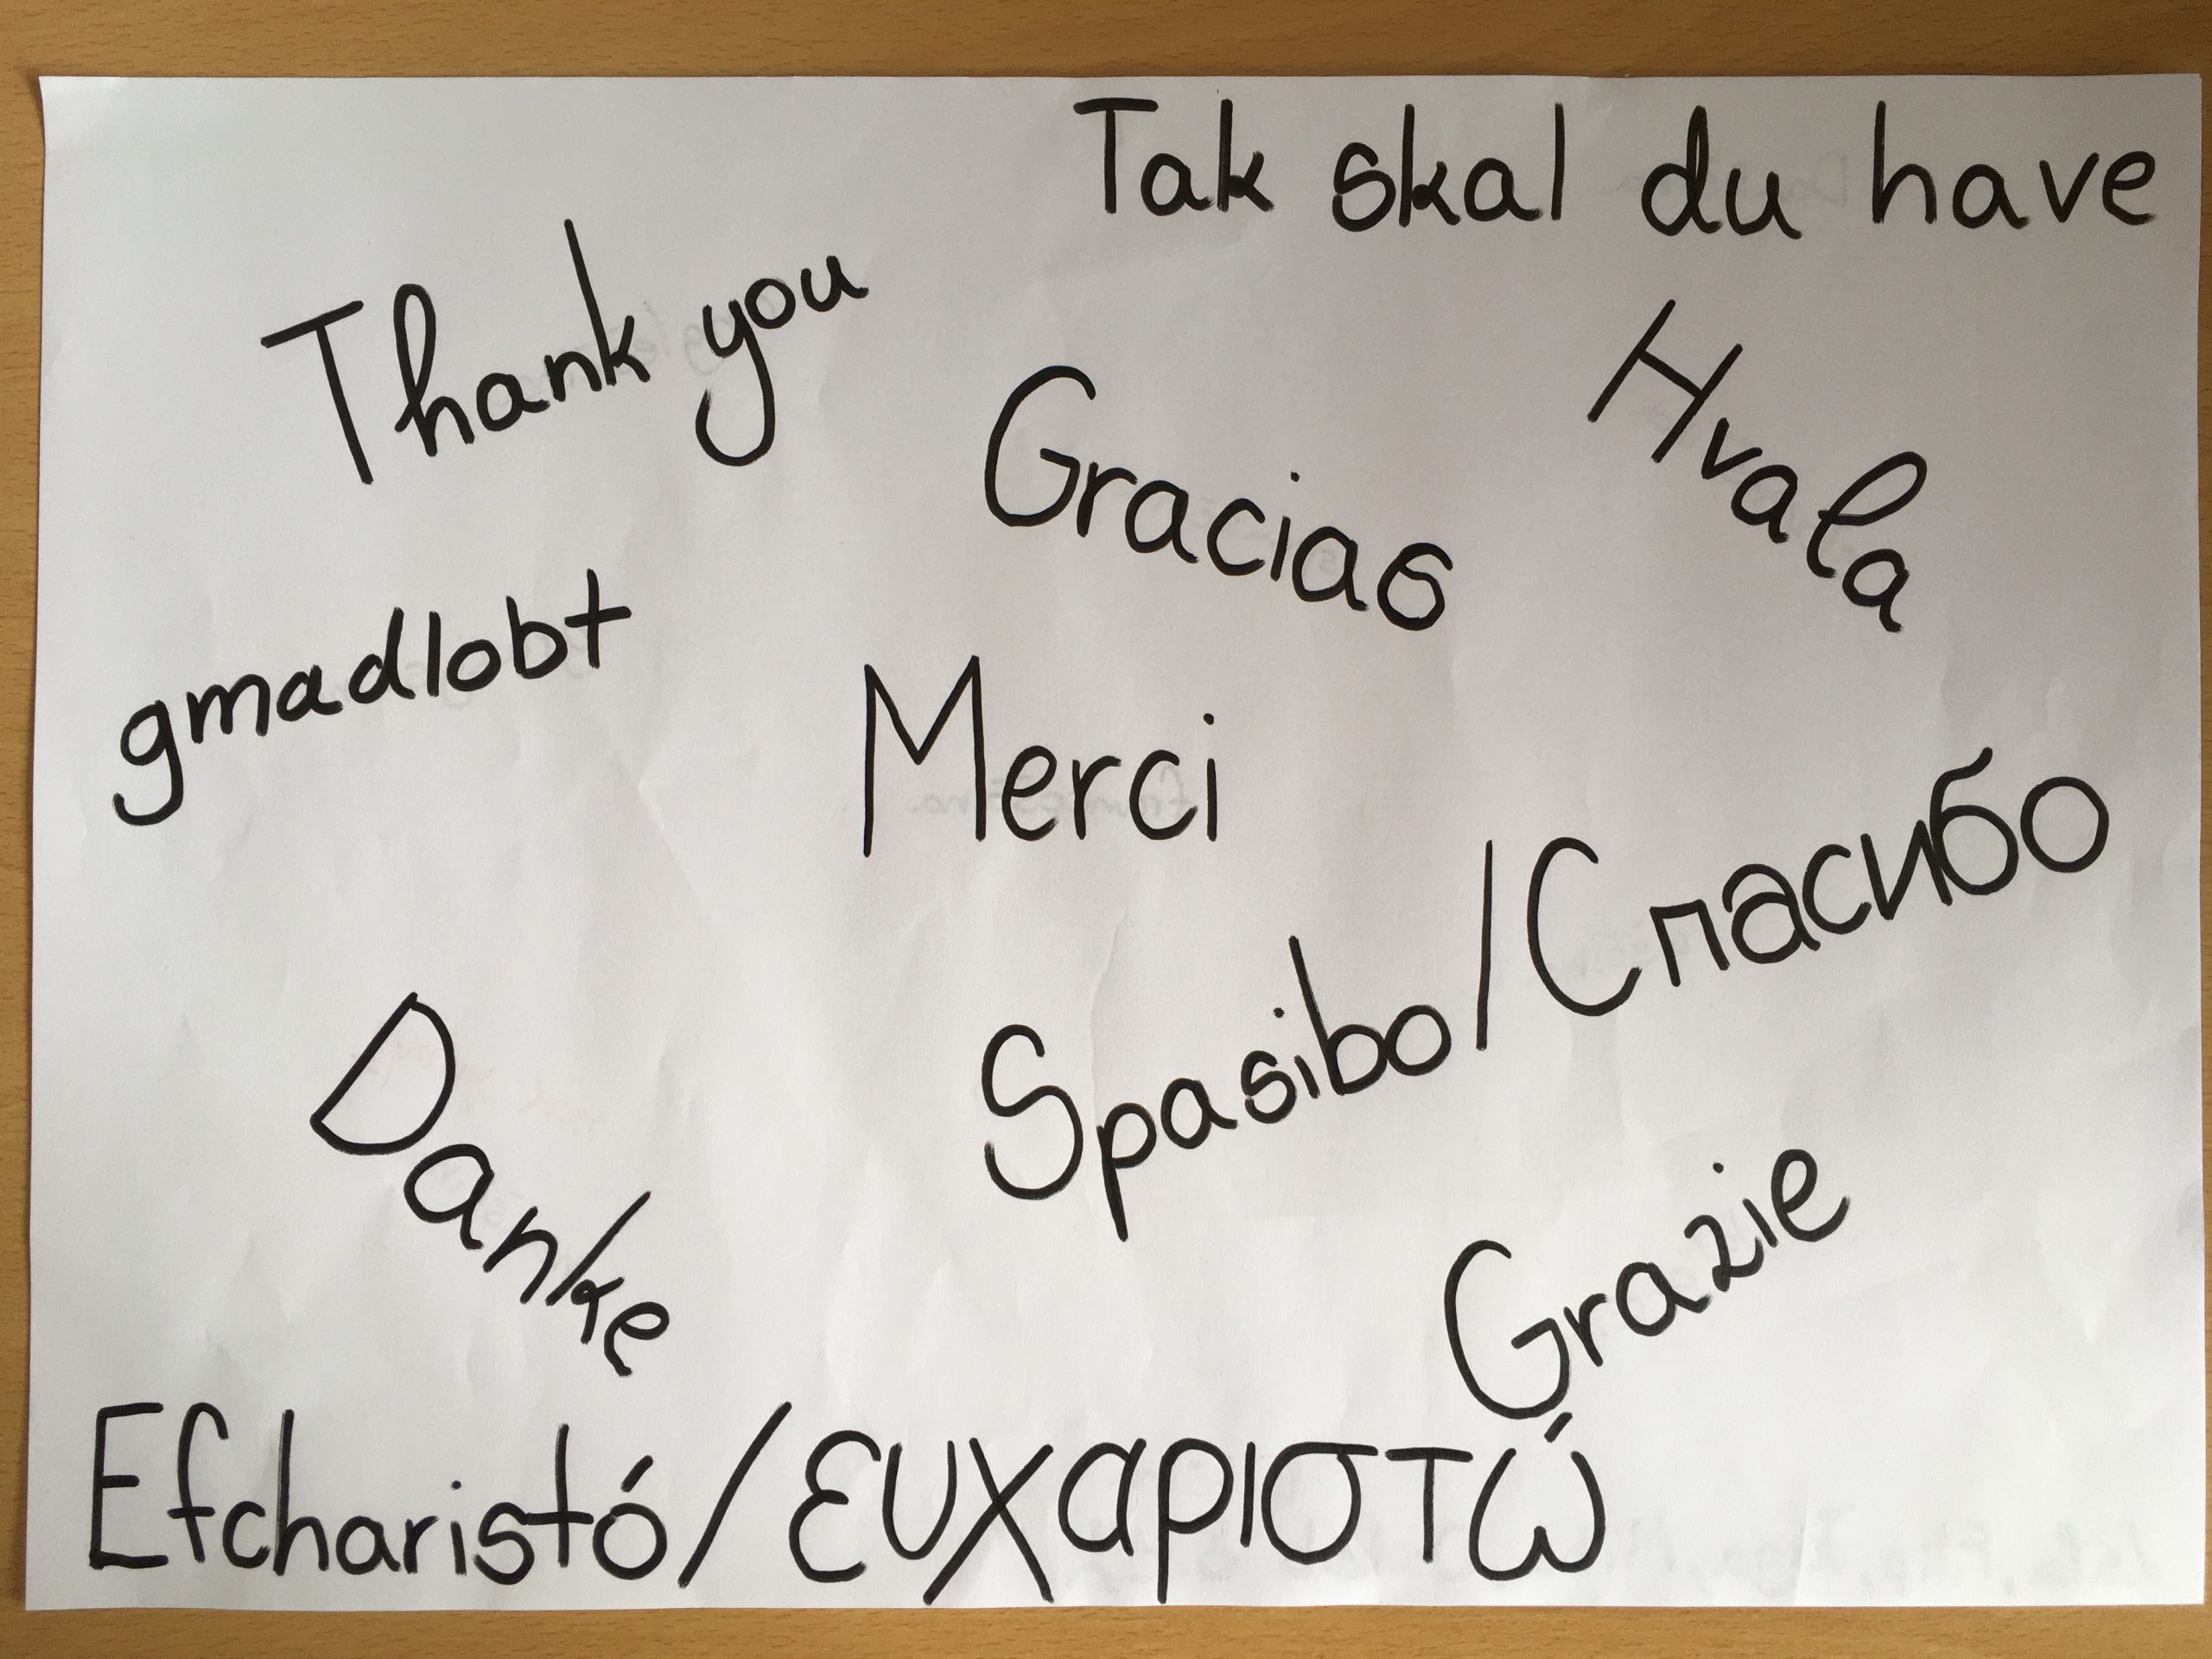 Tak skal du have
Thank you
Gracias
Hvala
gmadlobt
Merci
Spasibo/Спасибо
Danke
Grazie
Efcharistó/ευχαριστώ